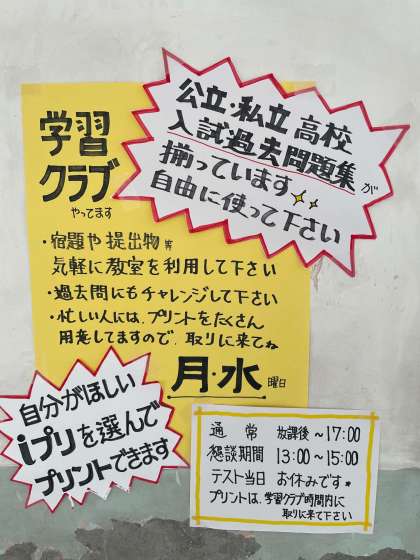 公立・私立 高校
入試過去問題集が
揃っています
自由に使って下さい
学習
クラブ
やってます
・宿題や提出物等
気軽に教室を利用して下さい
・過去問にもチャレンジして下さい
・忙しい人には、プリントをたくさん
用意してますので、取りに来てね
月・水曜日
自分がほしい
iプリを選んで
プリントできます
通常 放課後～17:00
懇談期間 13:00～15:00
テスト当日 お休みです。
プリントは、学習クラブ時間内に
取りに来て下さい